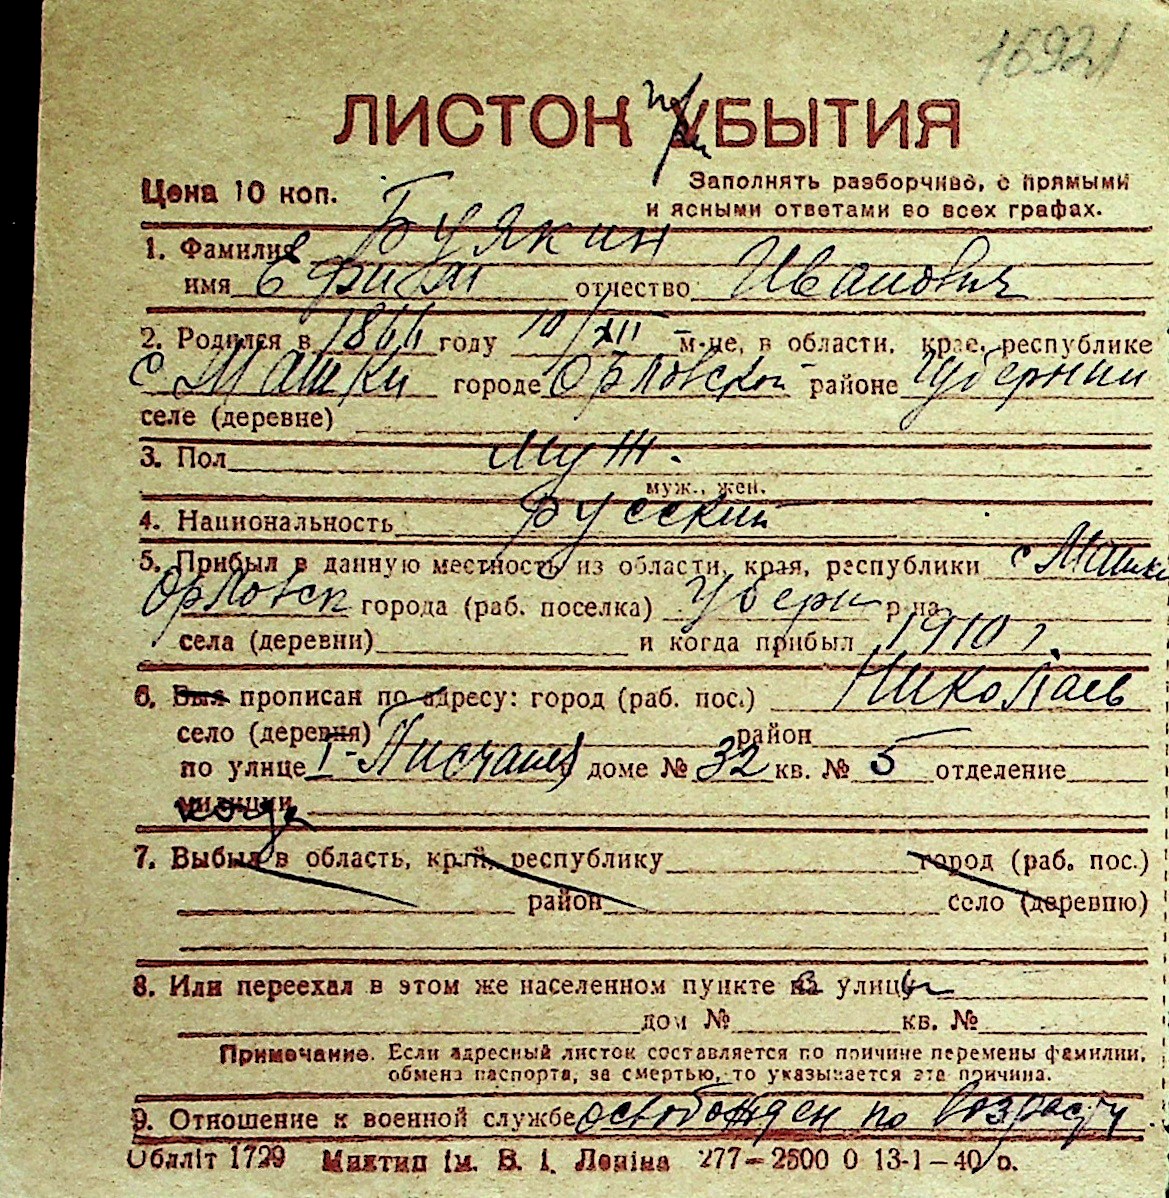 16921
ЛИСТОК при УБЫТИЯ
Цена 10 коп. Заполнять разборчиво, с прямыми
и ясными ответами во всех графах.
1. Фамилия Буякин
имя Ефим отчество Иванович
2. Родился в 1866 году 10/XII м-це, в области, крае, республике
с Машки городе Орловской районе губернии
селе (деревне)
3. Пол муж.
муж., жен.
4. Национальность русский
5. Прибыл в данную местность из области, края, республики с Машки
Орловск города (раб. поселка) губерн р-на
села (деревни) и когда прибыл 1910 г.
6. Был прописан по адресу: город (раб. пос.) Николаев
село (деревня) район
по улице I-Писчаная доме № 32 кв. № 5 отделение
милиции
7. Выбыл в область, край, республику город (раб. пос.)
район село (деревню)
8. Или переехал в этом же населенном пункте на улицу
дом № кв. №
Примечание. Если адресный листок составляется по причине перемены фамилии,
обмена паспорта, за смертью, то указывается эта причина.
9. Отношение к военной службе освобожден по возрасту
Обллiт 1729 Миктип iм. В. I. Ленiна 277–2500 0 13-1–40 р.